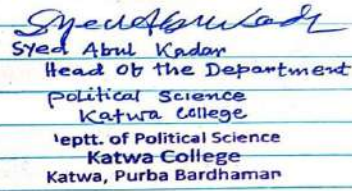 Syed Abul Kadar
Syed Abul Kadar
Head Of the Department
Political Science
Katwa College
eptt. of Political Science
Katwa College
Katwa, Purba Bardhaman